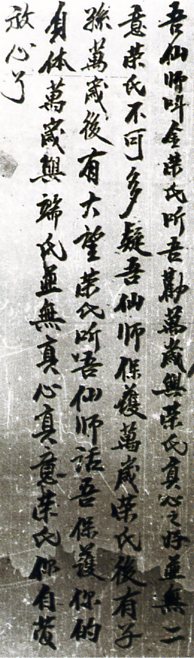 吾仙师叫金荣氏听吾勸萬岁與荣氏真心之好並無二
意荣氏不可多疑吾仙师保護萬歲荣氏後有子
孫萬歲後有大望荣氏听吾仙师話吾保護你的
身体萬歲與端氏並無真心真意荣氏你自管
放心了